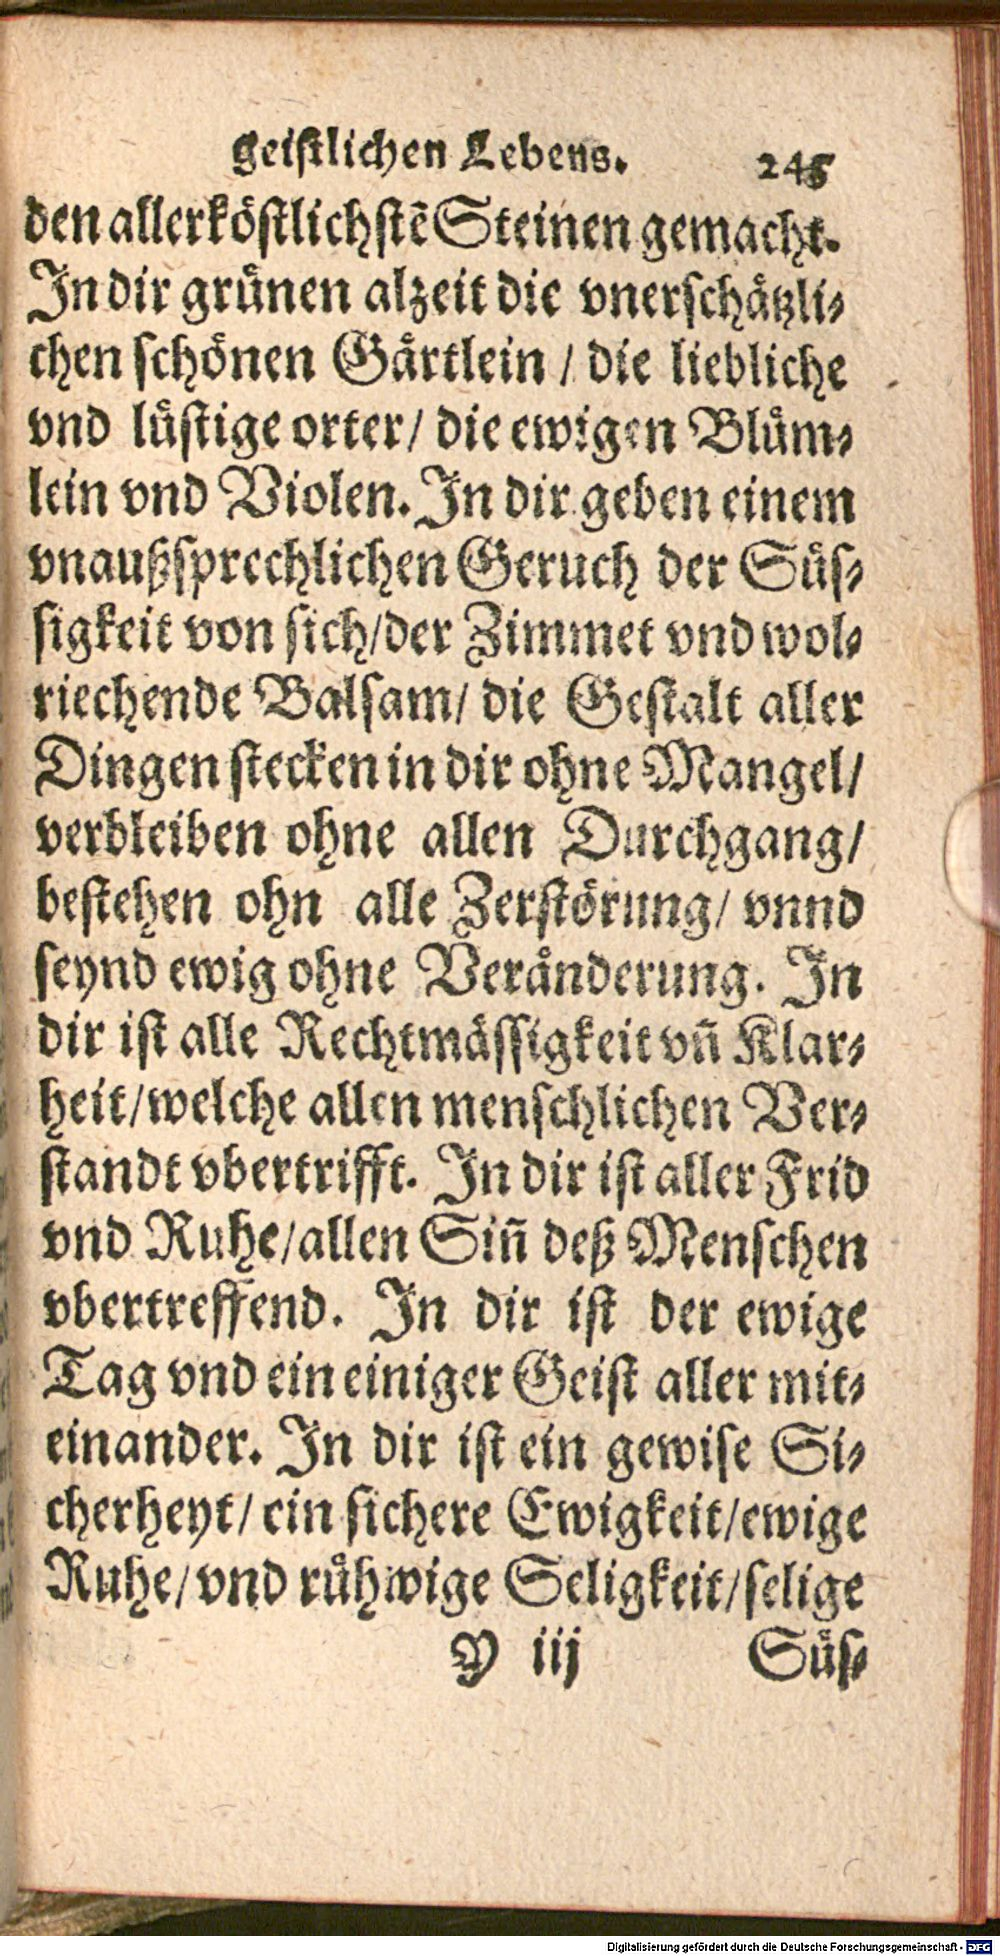 geistlichen Lebens. 245
den allerköstlichstē Steinen gemacht.
In dir grůnen alzeit die vnerschåtzli⸗
chen schönen Gårtlein / die liebliche
vnd lůstige orter / die ewigen Blům⸗
lein vnd Violen. In dir geben einem
vnaußsprechlichen Geruch der Sůs⸗
sigkeit von sich / der Zimmet vnd wol⸗
riechende Balsam / die Gestalt aller
Dingen stecken in dir ohne Mangel /
verbleiben ohne allen Durchgang /
bestehen ohn alle Zerstörung / vnnd
seynd ewig ohne Verånderung. In
dir ist alle Rechtmässigkeit vñ Klar⸗
heit / welche allen menschlichen Ver⸗
standt vbertrifft. In dir ist aller Frid
vnd Ruhe / allen Siñ deß Menschen
vbertreffend. In dir ist der ewige
Tag vnd ein einiger Geist aller mit⸗
einander. In dir ist ein gewise Si⸗
cherheyt / ein sichere Ewigkeit / ewige
Ruhe / vnd růhwige Seligkeit / selige
V iij Sůs⸗
Digitalisierung gefördert durch die Deutsche Forschungsgemeinschaft - DFG